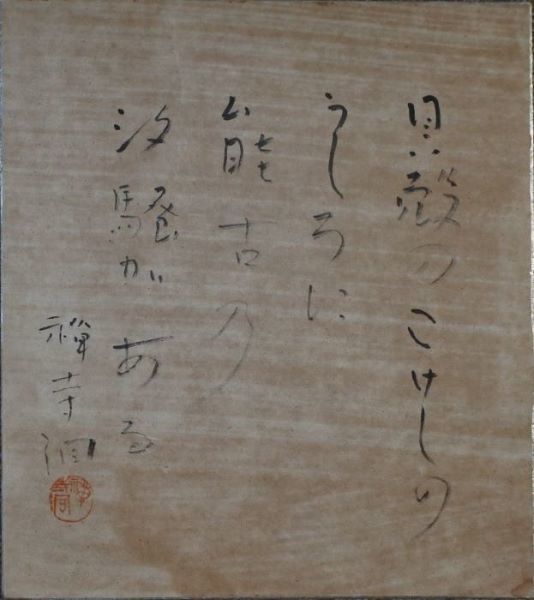 貝殻のこけしの
うしろに
能古の
汐騒がある
禅寺洞